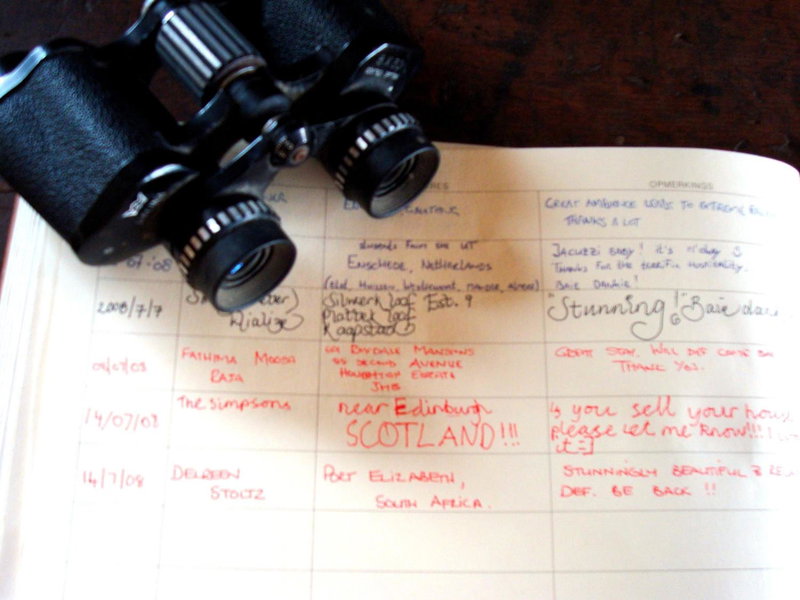 OPMERKINGS
GREAT AMBIENCE LENDS TO EXTREME
THANKS A LOT
07-'08
STUDENTS FROM THE UT
ENSCHEDE, NETHERLANDS
JACUZZI BABY! it's
THANKS FOR THE TERRIFIC HOSPITALITY.
BAIE DANKIE!
2008/7/7
Rialize
Silwerk Loof Est. 9
Plattek loof
Kaapstad
"Stunning!" Baie
09/07/08
FATHIMA MOOSA
RAJA
MANSIONS
SECOND AVENUE
HOUGHTON ESTATE
JHB
GREAT STAY. WILL DEF COME
THANK YOU.
14/07/08
The Simpsons
near Edinburgh
SCOTLAND!!!
If you sell your hous
please let me know!!! I
it =]
14/7/08
DELREEN
STOLTZ
PORT ELIZABETH,
SOUTH AFRICA.
STUNNINGLY BEAUTIFUL &
DEF. BE BACK !!